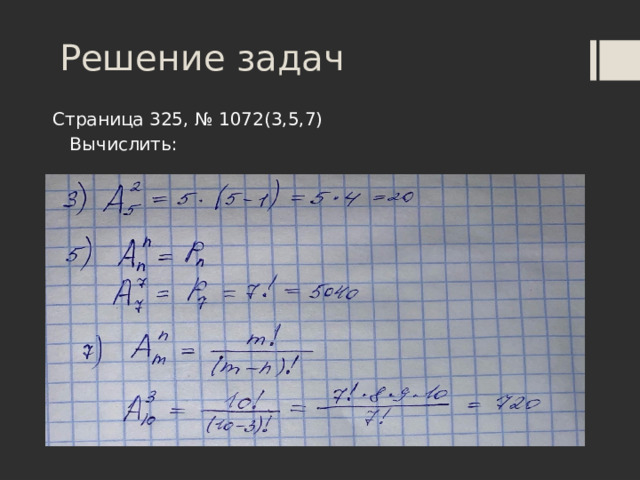 Решение задач
Страница 325, № 1072(3,5,7)
Вычислить:
3) A₅² = 5·(5-1) = 5·4 =20
5) Aₙⁿ = Pₙ
A₇⁷ = P₇ = 7! = 5040
7) Aₘⁿ = m!/(m-n)!
A₁₀³ = 10!/(10-3)! = 7!·8·9·10/7! = 720